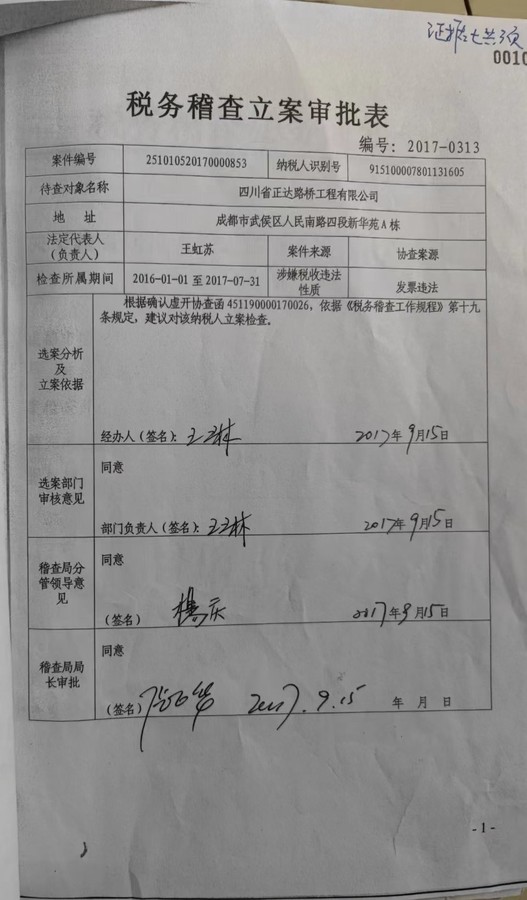 证据七共3页
0010
税务稽查立案审批表
编号: 2017-0313
案件编号 251010520170000853 纳税人识别号 915100007801131605
待查对象名称 四川省正达路桥工程有限公司
地 址 成都市武侯区人民南路四段新华苑A栋
法定代表人
(负责人) 王虹苏 案件来源 协查案源
检查所属期间 2016-01-01 至 2017-07-31 涉嫌税收违法
性质 发票违法
根据确认虚开协查函451190000170026, 依据《税务稽查工作规程》第十九
条规定, 建议对该纳税人立案检查。
选案分析
及
立案依据
经办人(签名): 2017年9月15日
选案部门
审核意见
同意
部门负责人(签名): 2017年9月15日
稽查局分
管领导意
见
同意
(签名) 2017年9月15日
稽查局局
长审批
同意
(签名) 2017.9.15 年 月 日
-1-